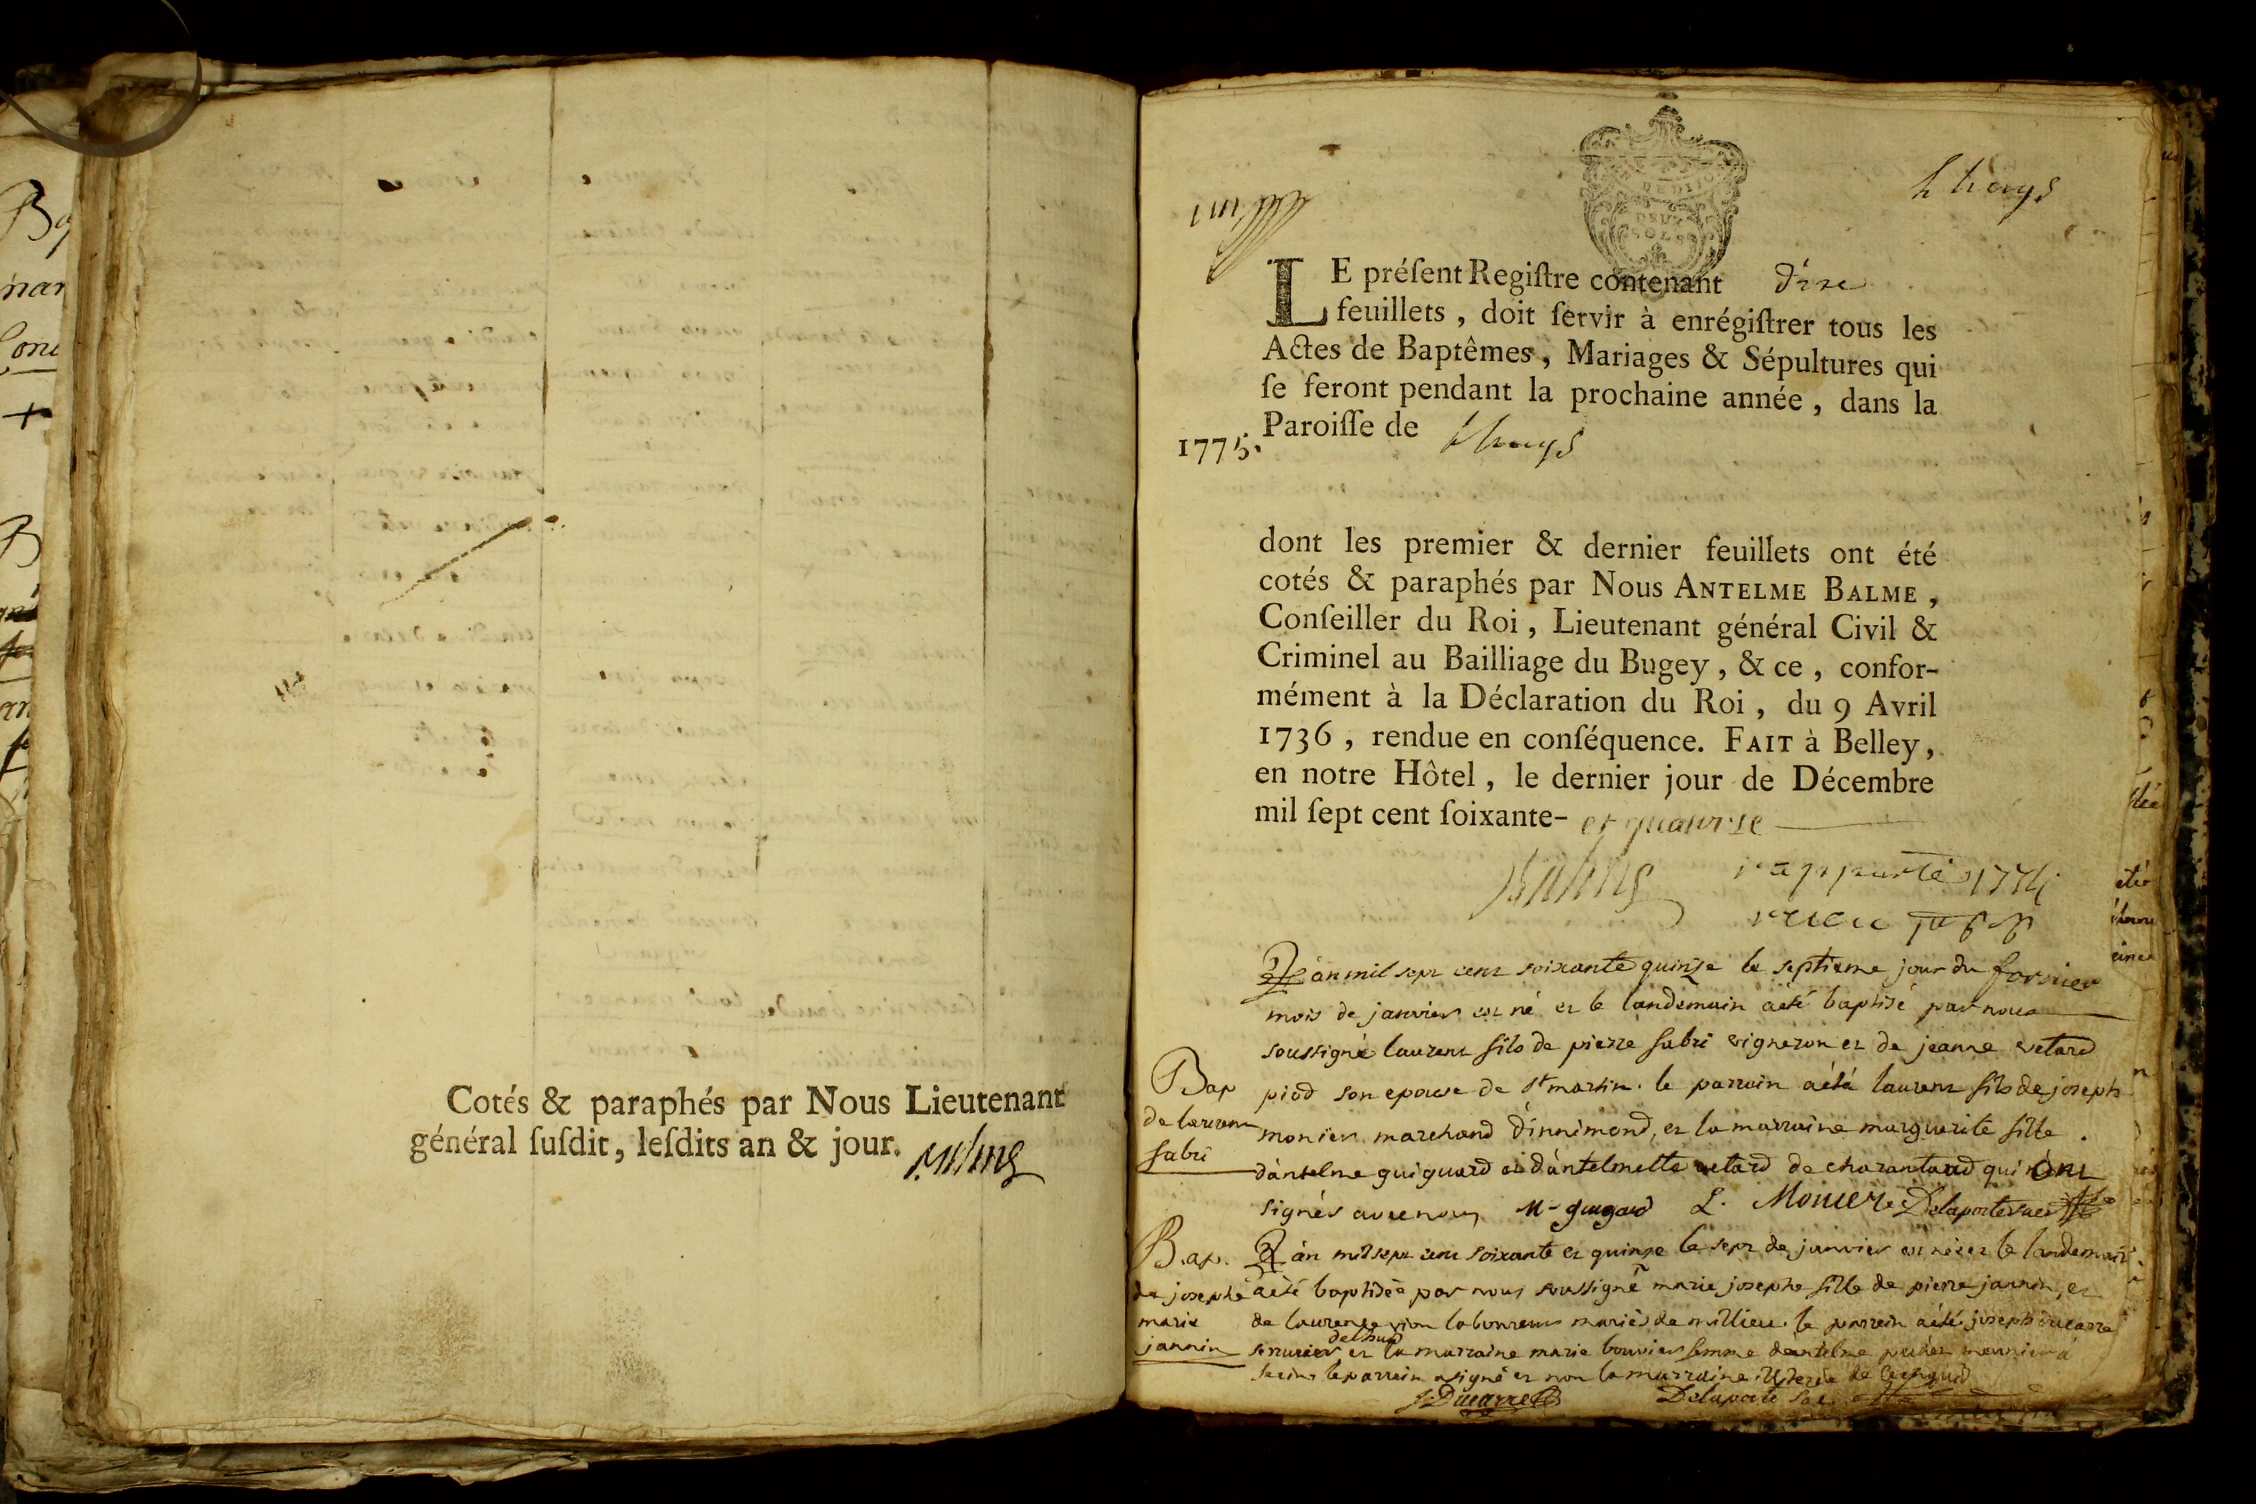 Cotés & paraphés par Nous Lieutenant
général ſuſdit, leſdits an & jour.
Lhuys
DEUX
SOLS
LE préſent Regiſtre contenant dixe
feuillets, doit ſervir à enrégiſtrer tous les
Actes de Baptêmes, Mariages & Sépultures qui
ſe feront pendant la prochaine année, dans la
Paroiſſe de Lhuys
1775.
dont les premier & dernier feuillets ont été
cotés & paraphés par Nous ANTELME BALME,
Conſeiller du Roi, Lieutenant général Civil &
Criminel au Bailliage du Bugey, & ce, confor-
mément à la Déclaration du Roi, du 9 Avril
1736, rendue en conſéquence. FAIT à Belley,
en notre Hôtel, le dernier jour de Décembre
mil ſept cent ſoixante- et quatorze
Balme
rapporté 1775
L'an mil sept cent soixante quinze le septieme jour du
mois de janvier est né et le landemain a été baptisé par nous
soussigné laurent fils de pierre fabri vigneron et de jeanne vetard
piod son epouse de st martin. le parrain a été laurent fils de joseph
monier marchand d'innimond, et la marraine marguerite fille
d'antelme guiguard et d'antelmette vetard de charantaud qui ont
signés avec nous M. guigard L. Monier Delaporte
Bap
de laurent
fabri
Bap.
de josephe
marie
jannin
L'an mil sept cent soixante et quinze le sept de janvier est née et le landemain
a été baptisée par nous soussigné marie josephe fille de pierre jannin, et
de laurence vion laboureurs mariés de millieu. le parrain a été joseph ducarre
serrurier et la marraine marie bouvier femme d'antelme
le parrain a signé et non la marraine illiterée de
J. Ducarre Delaporte